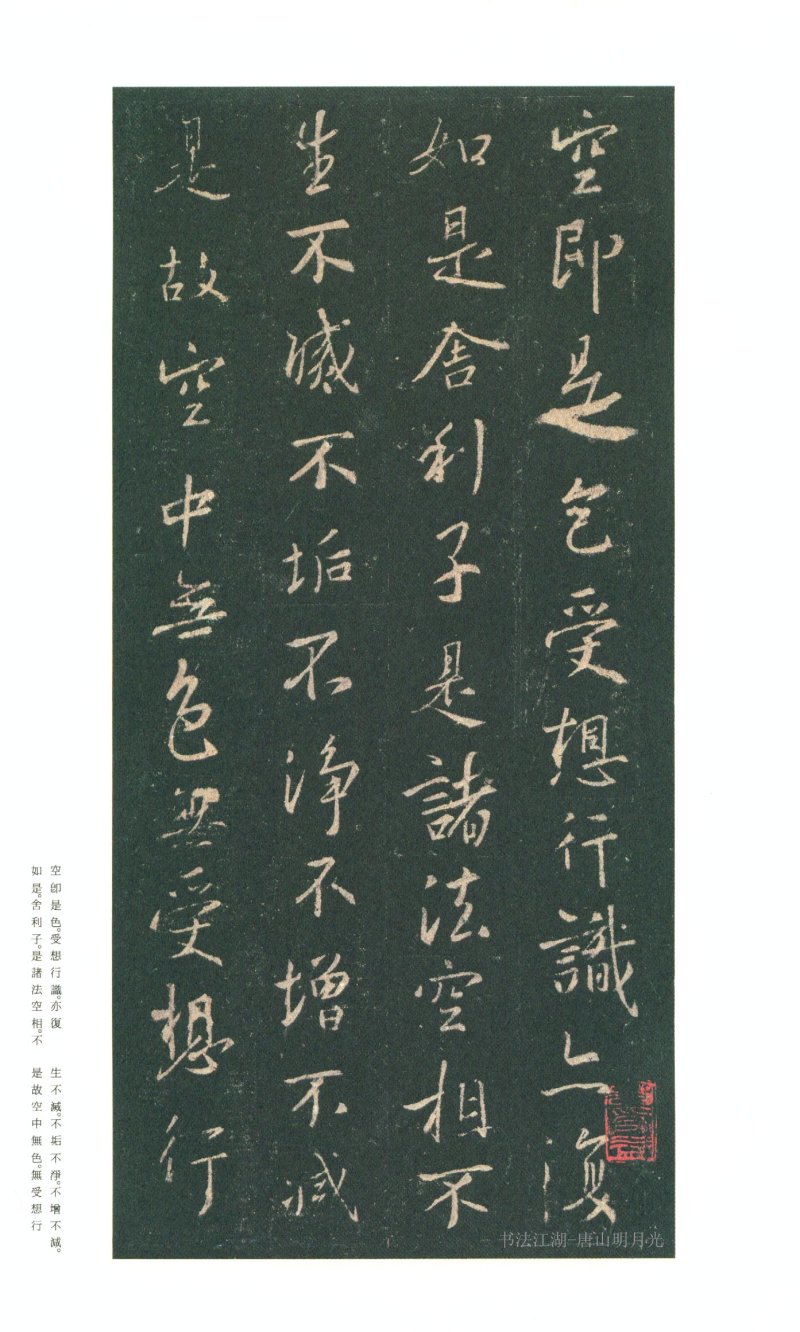 空即是色受想行識亦復
如是舍利子是諸法空相不
生不滅不垢不淨不增不減
是故空中無色無受想行
空卽是色。受想行識。亦復
如是。舍利子。是諸法空相。不
生不滅。不垢不淨。不增不減。
是故空中無色。無受想行
书法江湖-唐山明月光